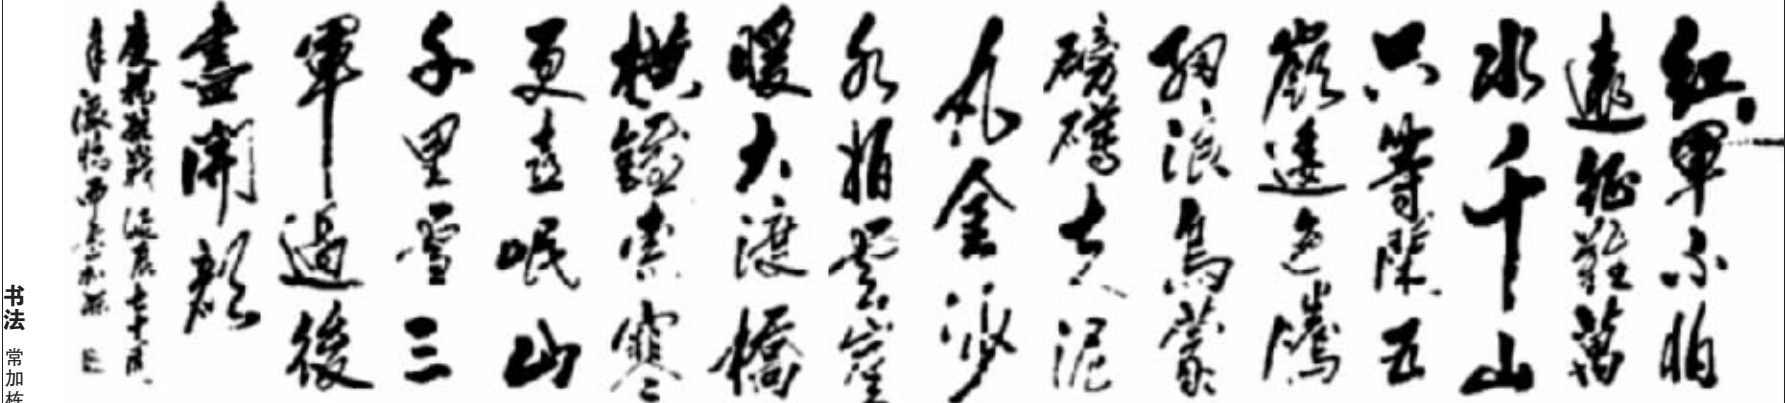 紅軍不怕
遠征難萬
水千山
只等閑五
嶺逶迤騰
細浪烏蒙
磅礴走泥
丸金沙
水拍雲崖
暖大渡橋
橫鐵索寒
更喜岷山
千里雪三
軍過後
盡開顏
七十周
年
书法 常加栋